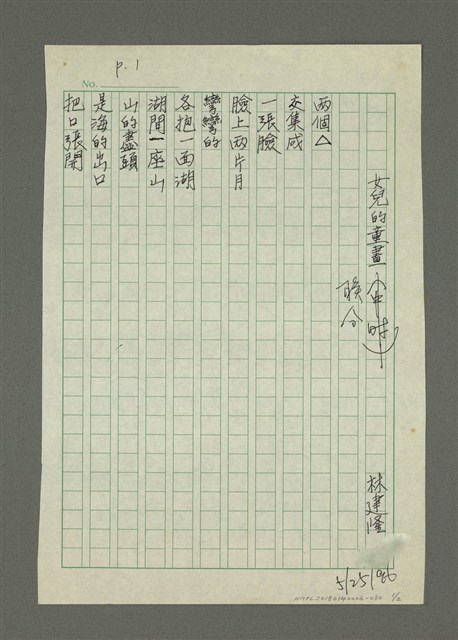 P. 1
No.
女兒的童畫
聯合
林建隆
5/25/96
兩個△
交集成
一張臉
臉上兩片月
彎彎的
各抱一面湖
湖間一座山
山的盡頭
是海的出口
把口張開
1/2